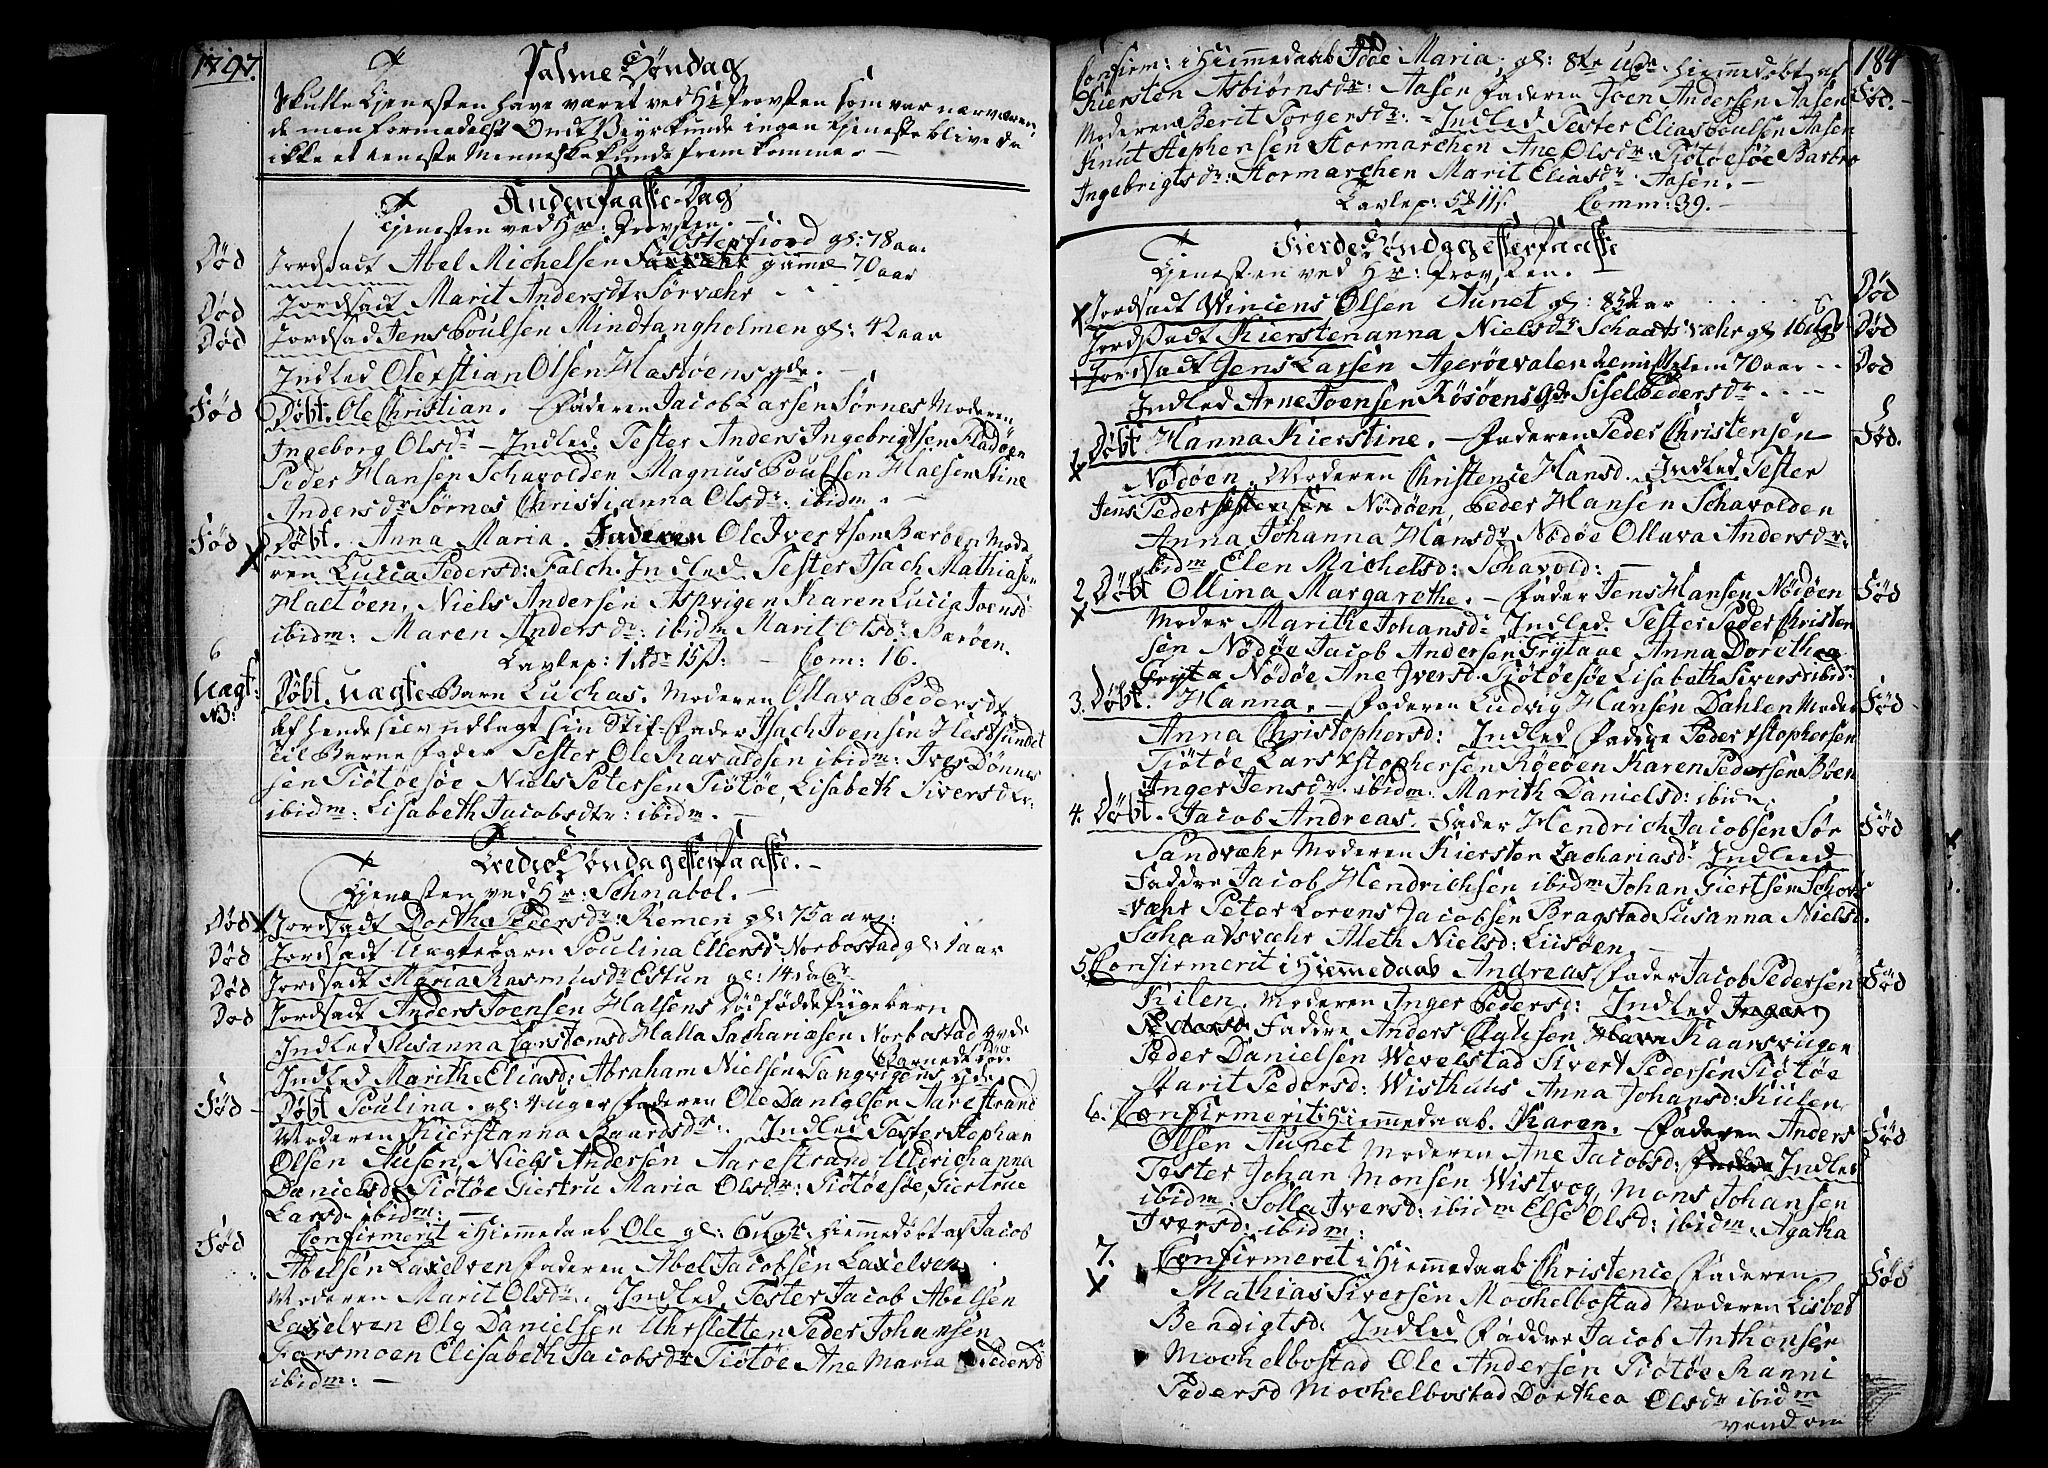 1797.
Palme Søndag
Skulle tjenesten have været ved Hr Provsten som var nærværen
de men formedelst Ondt Veyr kunde ingen tjeneste blive da
ikke et eneste Menneske kunde fremkomme. —
Anden Paaske-Dag
tjenesten ved Hr: Provsten. —
Død Jordsadt Abel Michelsen Østerfiord gl: 78 aar
Død Jordsadt Marit Andersdr: Sørvæhr gaml 70 aar
Død Jordsad Jens Poulsen Mindtangholmen gl: 42 aar
Indled Olexstian Olsen Hastøens qde. —
Fød Døbt. Ole Christian. Faderen Jacob Larsen Sørnes Moderen
Ingeborg Olsdr — Indled Tester Anders Ingebrigtsen Fladøen
Peder Hansen Schavolden Magnus Poulsen Halsen Stine
Andersdr Sørnes Christianna Olsdr: ibidm. —
Fød Døbt. Anna Maria. Faderen Ole Ivertsen Bærøen Mode
ren Lucia Pedersd: Falch. Indled. Tester Isach Mathiasen
Haltøen, Niels Andersen Aspvigen Karen Lucia Joensd
ibidm: Maren Andersdr: ibidm Marit Olsdr: Bærøen.
Tavlep: 1 rdr 15 ß: — Com: 16.
Uægt: NB: Døbt uægte Barn Luchas. Moderen Ollava Pedersdr
af hende blev udlagt sin Stif-Fader Isach Joensen Hestsundet
til Barne fader Tester Ole Ravaldsen ibidm: Iver Dønnes
sen Tiøtøesøe Niels Petersen Tiøtøe, Lisabeth Siversdr:
ibidm: Lisabeth Jacobsdtr: ibidm. —
Tredie Søndag efter Paaske. —
Tjenesten ved Hr: Schnabol. —
Død Jordsadt Dorthe Pedersdr: Remen gl: 75 aar:
Død Jordsadt Uægtebarn Poulina Ellersd: Norbostad gl: 1 aar
Død Jordsadt Maria Rasmusdr Estun gl: 14 dage
Død Jordsadt Anders Joensen Halsens Død fødde Pigebarn
Indled Susanna Carstensd Halla Sachariæsen Norbostad qvde
Barnet død.
Indled Marithe Eliasd: Abraham Nielsen Tangvigens qde
Fød Døbt Poulina. gl: 4 uger Faderen Ole Danielsen Aarestrand
Moderen Kierstanna Baardsdr: Indled Tester Stephan
Olsen Ausen, Niels Andersen Aarestrand Uldricha nna
Danielsdr Tiøtøe Giertru Maria Olsdr: Tiøtøesøe, Giertrue
Larsd. ibidm: —
Fød Confirmerit i Hiemmedaab Ole gl: 6 uger: Hiemmedøbt af Jacob
Abelsen Laxelven Faderen Abel Jacobsen Laxelven
Moderen Marit Olsdr. Indled Tester Jacob Abelsen
Laxelven Ole Danielsen Uhrsletten Peder Johansen
Forsmoen Elisabeth Jacobsdr Tiøtøe Ane Maria Pedersd
ibidm: —
184
Confirm: i Hiemmedaab Maria. gl: 8te uger Hiemmedøbt af
Kiersten Asbiørnsdr: Aasen Faderen Joen Andersen Aasen Fød.
Moderen Berit Torgersdr: — Indled Tester Elias Poulsen Aasen
Knut Stephensen Stormarchen Ane Olsdr: Tiøtøesøe Barbro
Ingebrigtsdr: Stormarchen Marit Eliasdr. Aasen. —
Tavlep: Comm: 39. —
Fierde Søndag efter Paaske
Tjenesten ved Hr: Provsten.
Jordsadt Wincens Olsen Aunet gl: 85 aar Død
Jordsadt Kierstenanna Nielsdr Schaatsvæhr gl 16 ugr Død
Jordsadt Jens Larsen Agerøevalen 70 aar Død
Indled Arne Joensen Røsøens qde Sisel Pedersdr
1 Døbt Hanna Kierstine. — Faderen Peder Christensen Fød.
Nødøen. Moderen Christence Hansd. Indled Tester
Jens Pedersen Nødøen, Peder Hansen Schavolden
Anna Johanna Hansdr Nødøe Ollava Andersdr.
ibidm Elen Michelsd: Schavold: —
2 Døbt Ollina Margarethe. — Fader Jens Hansen Nødøen Fød
Moder Marithe Johansd: Indled. Tester Peder Christen
sen Nødøe Jacob Andersen Grytaae Anna Dorothea
Gryta Nødøe Ane Iversd. Tiøtøesøe Lisabeth Siversd ibid:
3. Døbt. Hanna. — Faderen Ludvig Hansen Dahlen Moder Fød
Anna Christophersd: Indled Faddre Peder xstophersen
Tiøtøe Lars xstophersen Røeøen Karen Pedersen Bøen
Inger Jensdr. ibidm: Marith Danielsd: ibidm:
4. Døbt. Jacob Andreas. Fader Hendrich Jacobsen Sør Fød
Sandvæhr Moderen Kiersten Zachariasdr Indleed
Faddre Jacob Hendrichsen ibidm Johan Giertsen Schots
=væhr Peter Lorens Jacobsen Bragstad Susanna Nielsd.
Schaatsvæhr Aleth Nielsd: Luisøen —
5. Confirmerit i Hiemmedaab Andreas Fader Jacob Pedersen Fød
Kilen. Moderen Inger Pedersd: Indled
Faddre Anders Kaarsvigen
Peder Danielsen Wevelstad Sivert Pedersen Tiøtøe
Marit Pedersd: Wisthuus Anna Johansd: Kiilen
6. Confirmerit i Hiemmedaab. Karen. Faderen Anders Fød
Olsen Aunet Moderen Ane Jacobsd: Indled
Tester Johan Monsen Wistvog, Mons Johansen
ibidm: Solla Iversd: ibidm Else Olsd: ibidm. Agatha
Iversd: ibidm:
7. Confirmeret i Hiemmedaab Christence Faderen Fød
Mathias Siversen Mochelbostad Moderen Lisbet
Bendigtsd: Indled Faddre Jacob Anthonsen
Mochelbostad Ole Andersen Tiøtøe Kanni
Pedersd Mochelbostad Dorthea Olsdr ibidm
vend om